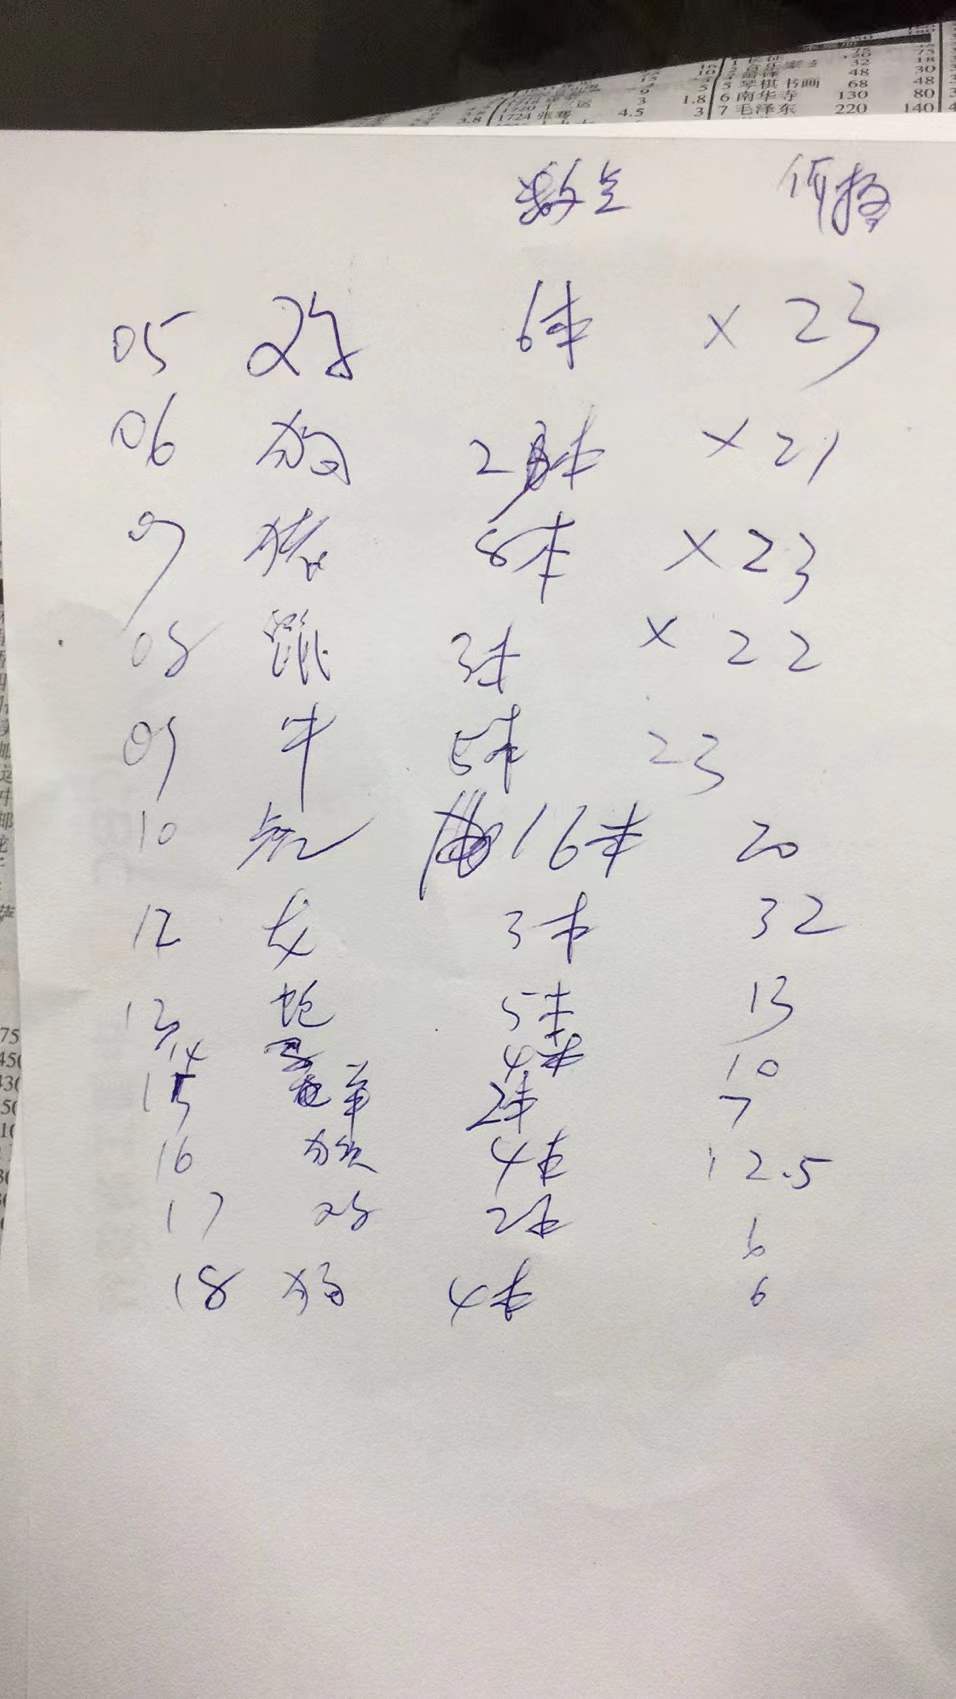 75
32 18
48 30
5 琴棋书画 68 48
1.8 6 南华寺 130 80
1724 张骞 4.5 3 7 毛泽东 220 140
数量 价格
05 鸡 6本 × 23
06 狗 2本 × 21
07 猪 8本 × 23
08 鼠 3本 × 22
09 牛 5本 23
10 虎 16本 20
12 龙 3本 32
13 蛇 5本 13
14 马 4本 10
15 羊 2本 7
16 猴 4本 12.5
17 鸡 2本 6
18 狗 4本 6